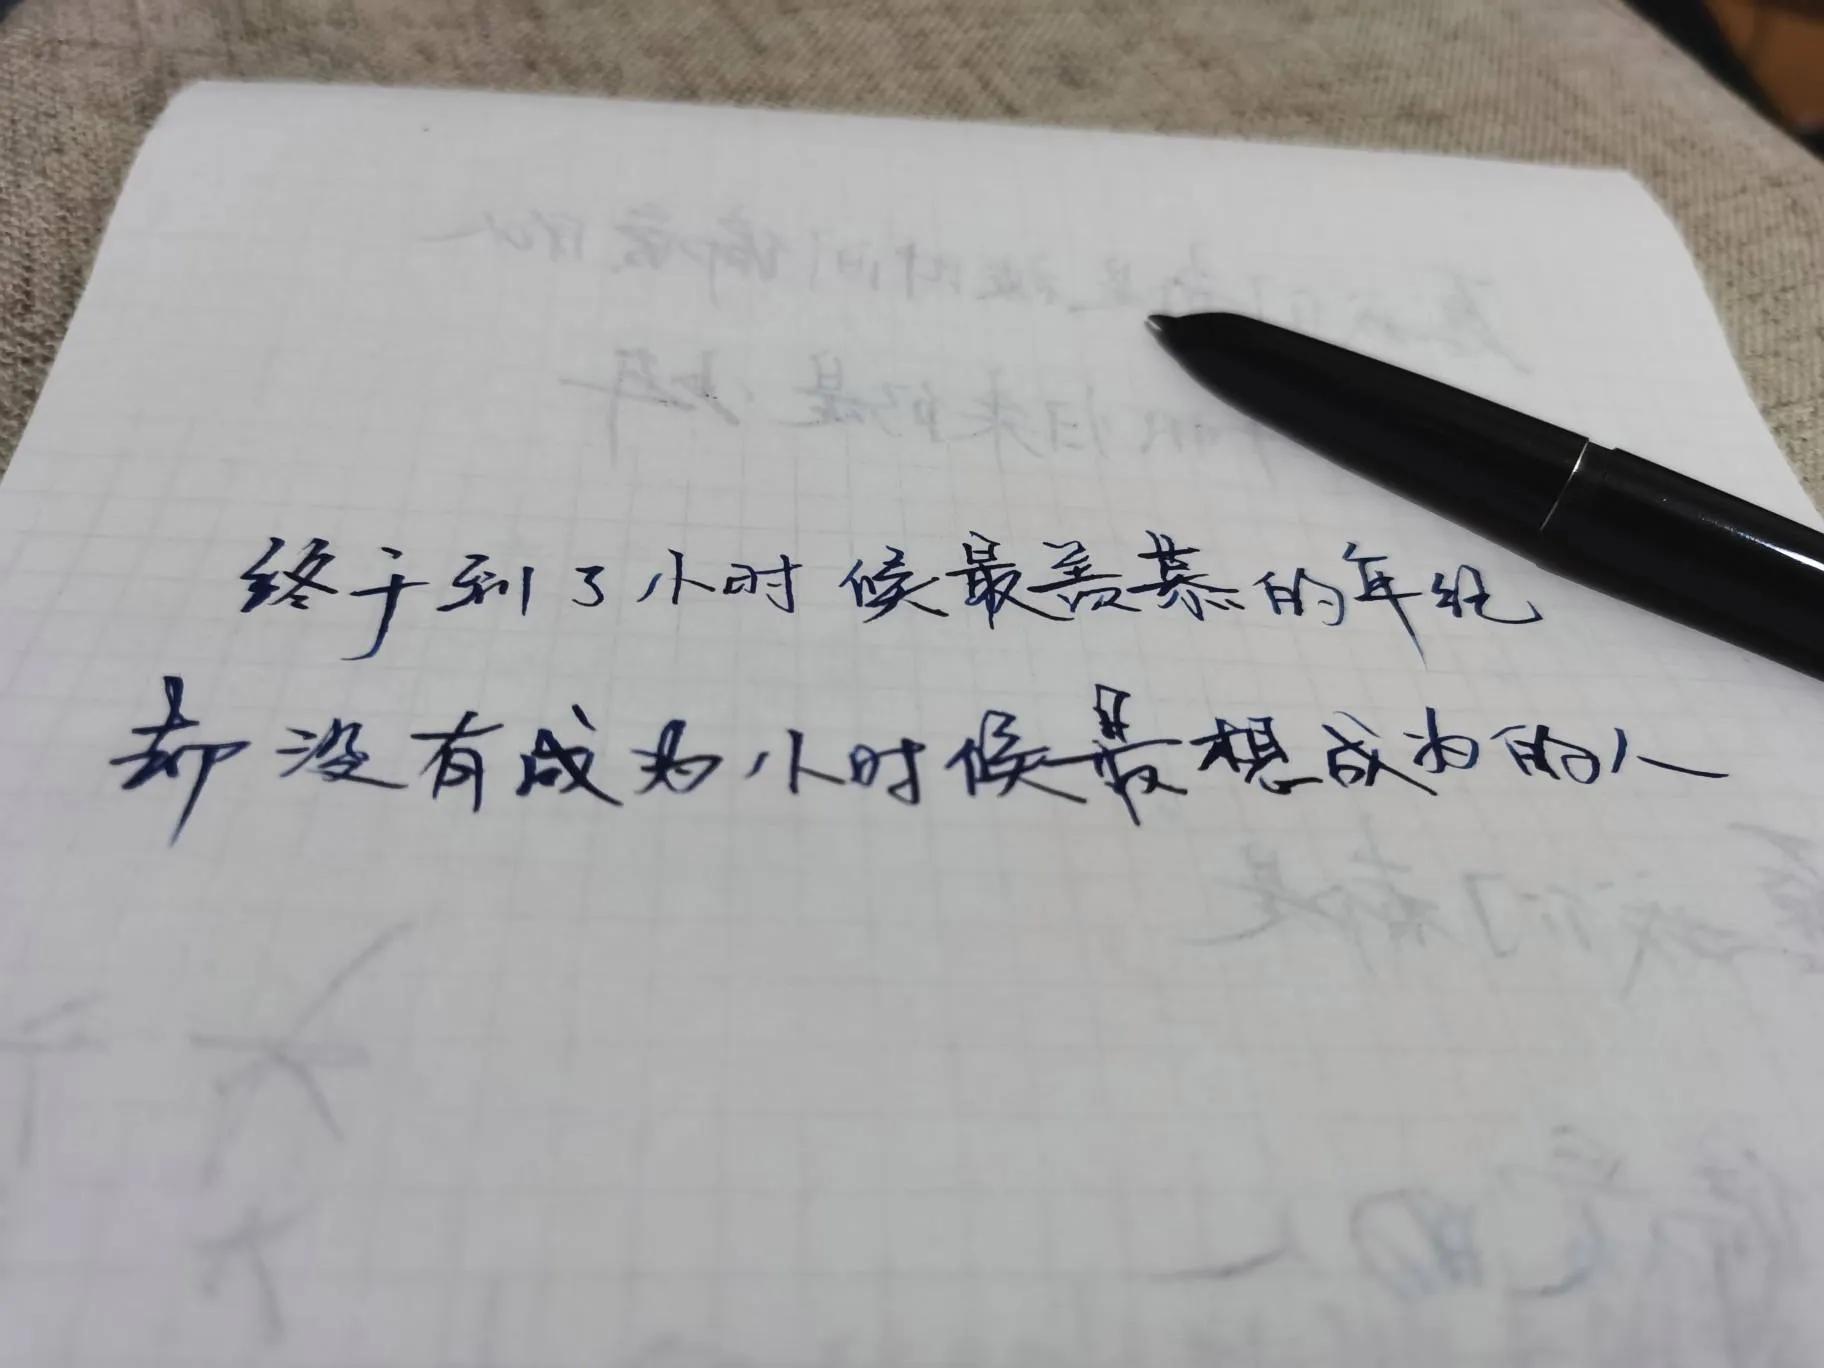 终于到了小时候最羡慕的年纪
却没有成为小时候最想成为的人